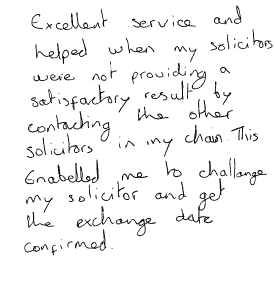 Excellent service and
helped when my solicitors
were not providing a
satisfactory result by
contacting the other
solicitors in my chain. This
Enabelled me to challange
my solicitor and get
the exchange date
confirmed.